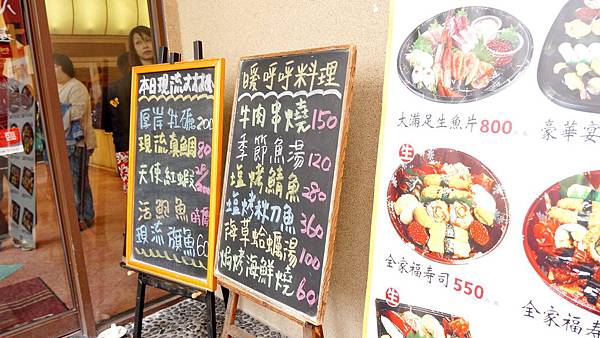 本日現流
厚岸牡礪 200
現流臭鯛 80
天使紅蝦 28
活鮑魚 時價
現流旗魚 60
暖呼呼料理
牛肉串燒 150
季節魚湯 120
塩烤鯖魚 280
塩烤秋刀魚 360
海草蛤蠣湯 100
焗烤海鮮燒 60
大滿足生魚片 800
豪華宴
生
全家福壽司 550
生
全家福壽
生